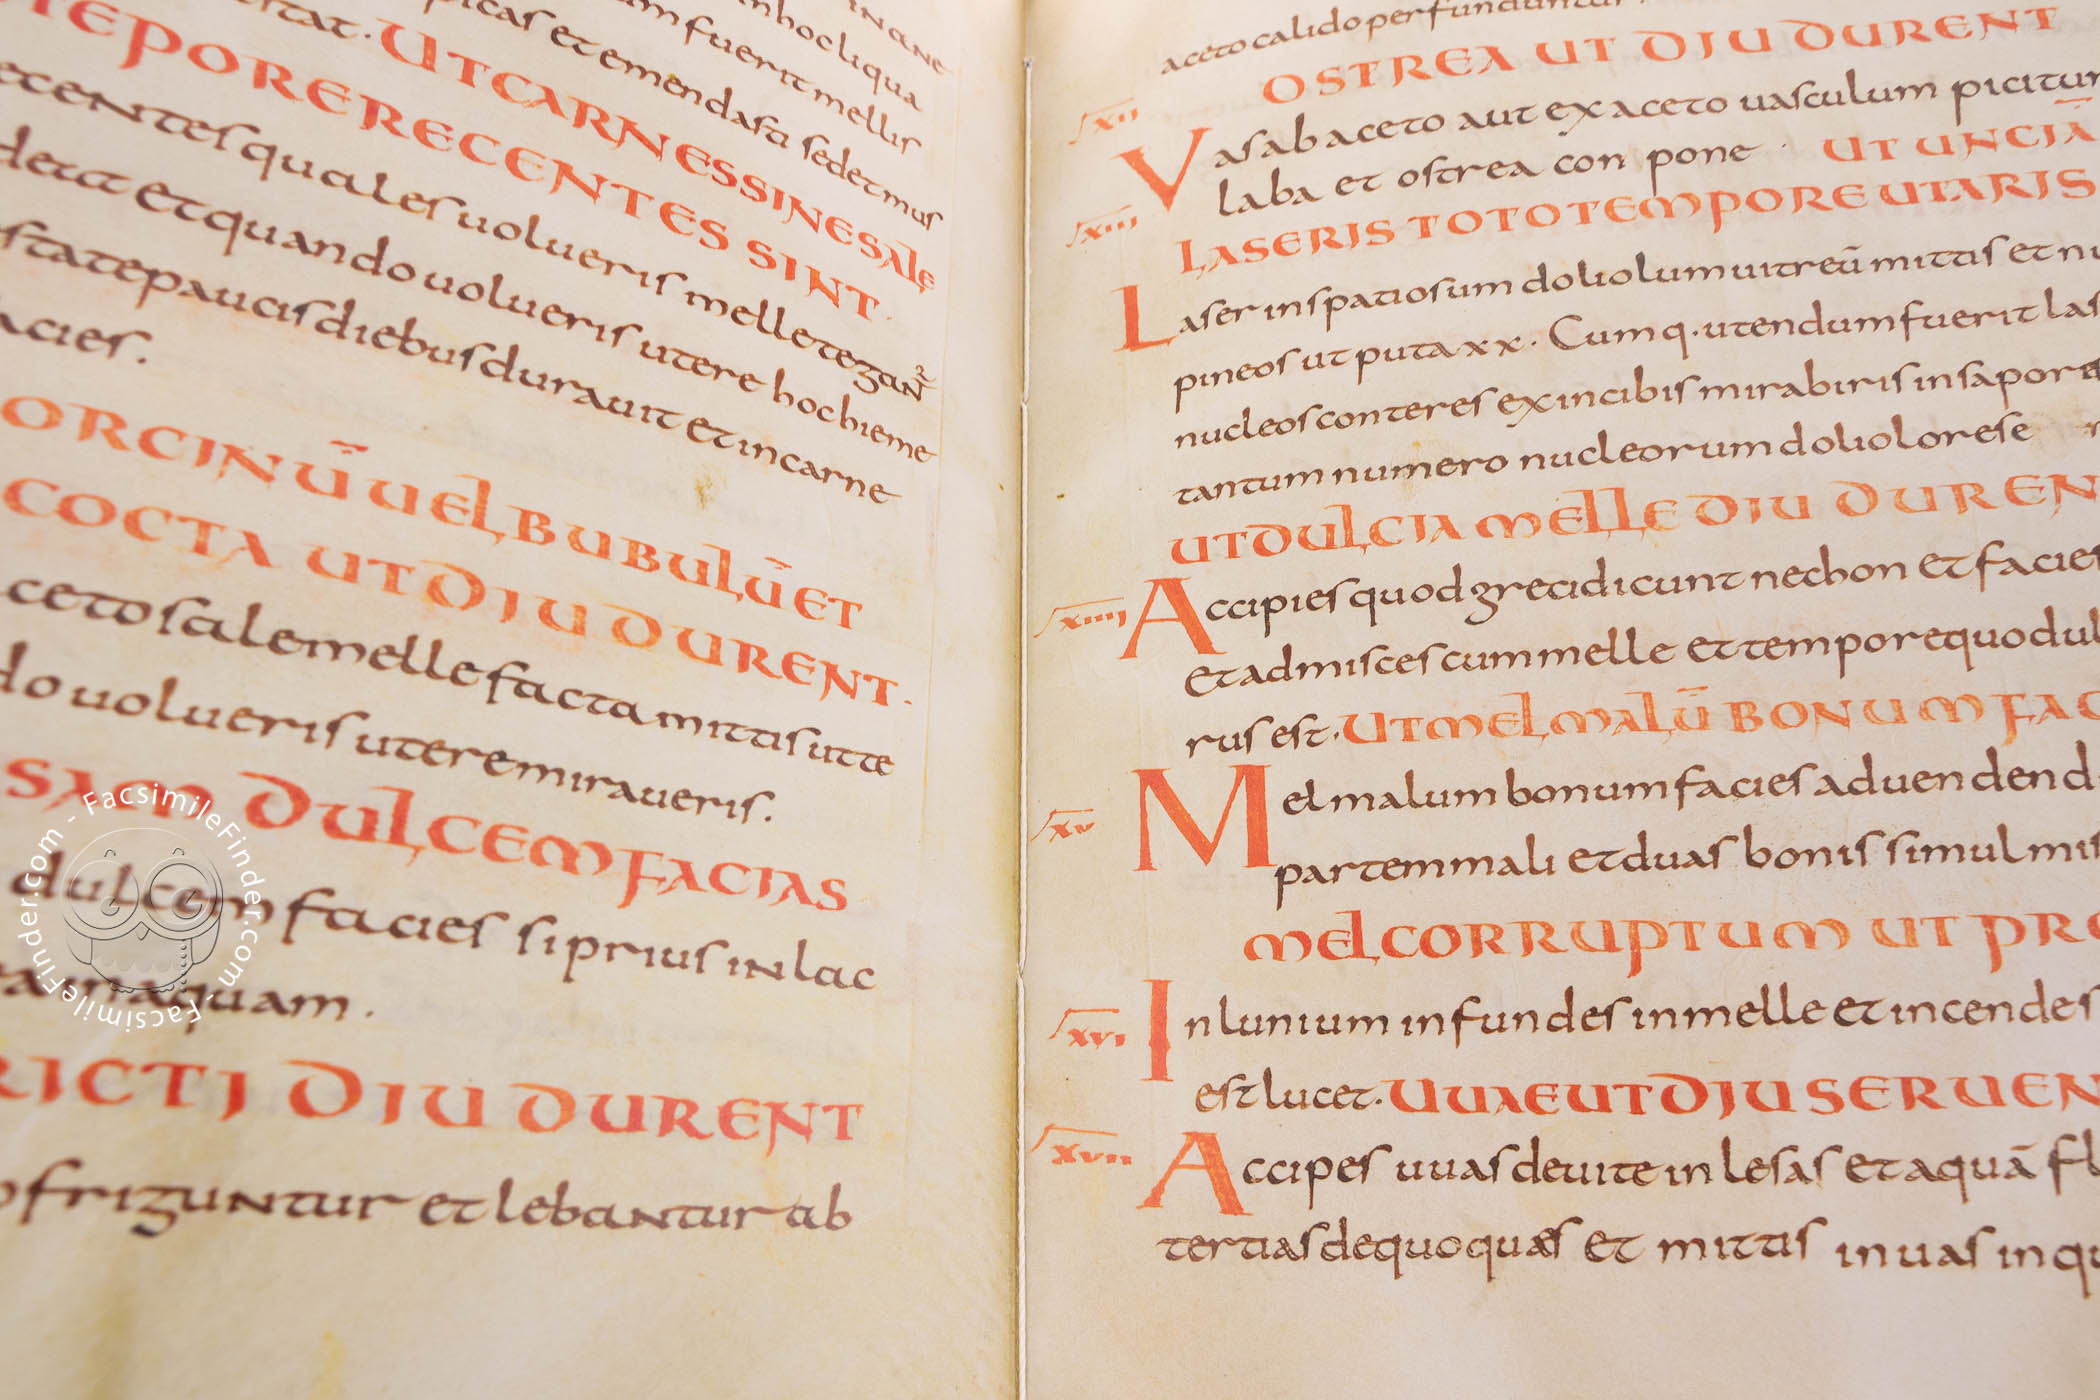 INANE
inhocliqua
fuerit mellis
picas et emendasti sedetmus
UTCARNESSINESALE
TEPORERECENTES SINT.
ecentes quales uolueris melletegan
et quando uolueris utere hochieme
statepaucisdiebusdurauit etincarne
acies.
ORCINŪ UELBUBULŪET
COCTA UTDIUDURENT.
cetosalemellefactamittisutte
do uolueris uteremiraueris.
SAM DULCEMFACIAS
dulcem facies siprius inlac
aquam.
RICTI DIU DURENT
friguntur et lebantur ab
aceto calido perfunduntur.
OSTREA UT DIU DURENT
XII Vasabaceto aut exaceto uasculum picitum
laba et ostrea con pone UT UNCIĀ
XIII LASERIS TOTOTEMPORE UTARIS
Laser inspatiosum doliolumuitreū mittis et nu
pineos utputa xx. Cumq. utendumfuerit las
nucleosconteres exincibis mirabiris insapore
tantum numero nucleorum doliolorese
UTDULCIA MELLE DIU DUREN
XIIII Accipies quodgrecidicunt nechon et facies
Et admisces cummelle et temporequodul
rus est. UTMEL MALŪ BONUM FAC
XV Mel malum bonum facies aduendend
partemmali et duas bonis simul mis
MELCORRUPTUM UT PRO
XVI Inlunium infundes inmelle et incendes
est lucet. UUAEUTDIUSERUEN
XVII Accipes uuas deuite inlesas et aquā fl
tertias dequoquas et mittis inuas inqu
FacsimileFinder.com - FacsimileFinder.com - FacsimileFinder.com